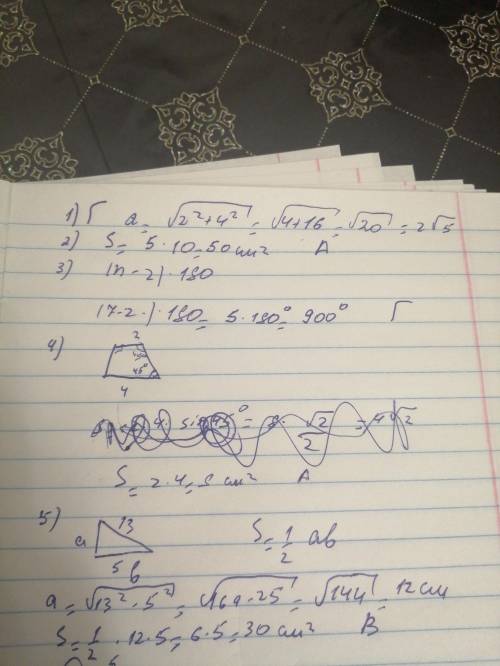 1) Г a = √2²+4² = √4+16 = √20 = 2√5
2) S = 5·10=50 см² А
3) (n-2)·180
(7-2)·180 = 5·180° = 900° Г
4)
2
45°
4
sin 45° = √2/2 = 4√2
S = 2·4=8 см² А
5)
a 13
5 b
S = 1/2 ab
a = √13²-5² = √169-25 = √144 = 12 см
S = 1/2 · 12·5 = 6·5 = 30 см² В